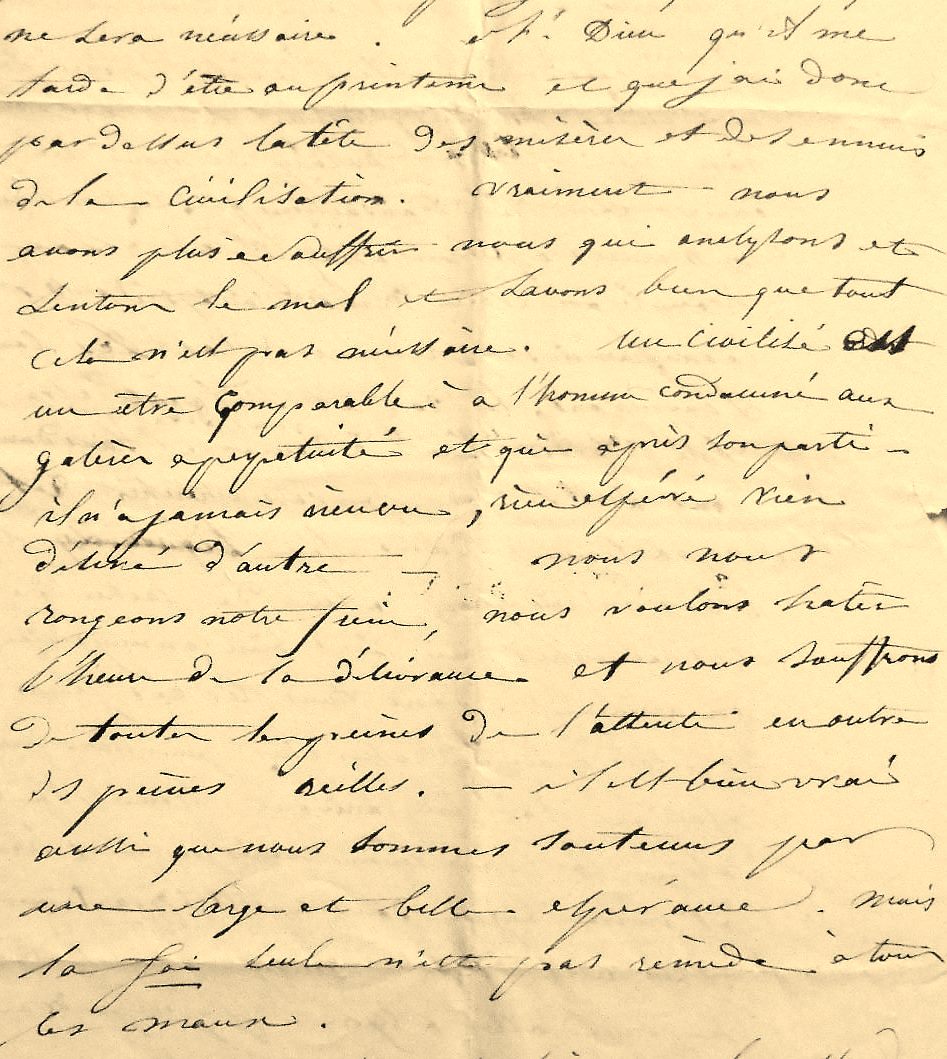 ne sera nécessaire. Dieu qu'il me
tarde d'être au printems et que j'ai donc
par dessus la tête des misères et des ennuis
de la Civilisation. Vraiment nous
avons plus à souffrir nous qui analysons et
sentons le mal et savons bien que tout
cela n'est pas nécessaire. un civilisé est
un être comparable à l'homme condamné aux
galères a perpetuité et qui a pris son parti –
il n'a jamais rien vu, rien espéré rien
désiré d'autre – nous nous
rongeons notre frein, nous voulons hater
l'heure de la délivrance et nous souffrons
de toutes les peines de l'attente en outre
des peines réelles. – il est bien vrai
aussi que nous sommes soutenus par
une large et belle espérance. Mais
la foi seule n'est pas remède à tous
les maux.